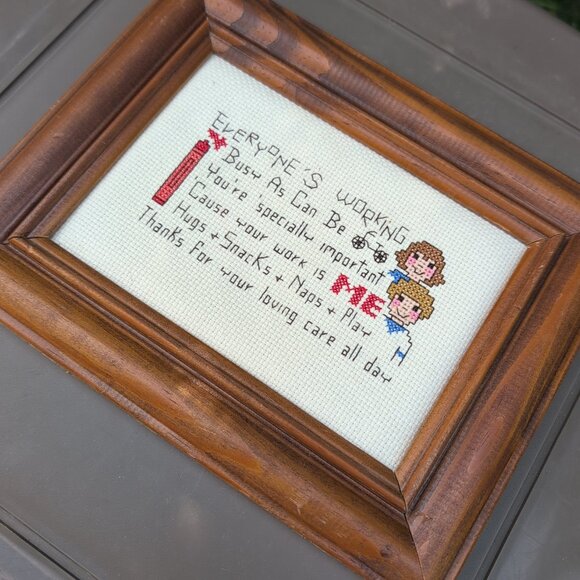 EVERYONE'S WORKING
Busy As Can Be
You're 'specially important
'Cause your work is ME
Hugs + Snacks + Naps + Play
Thanks for your loving care all day